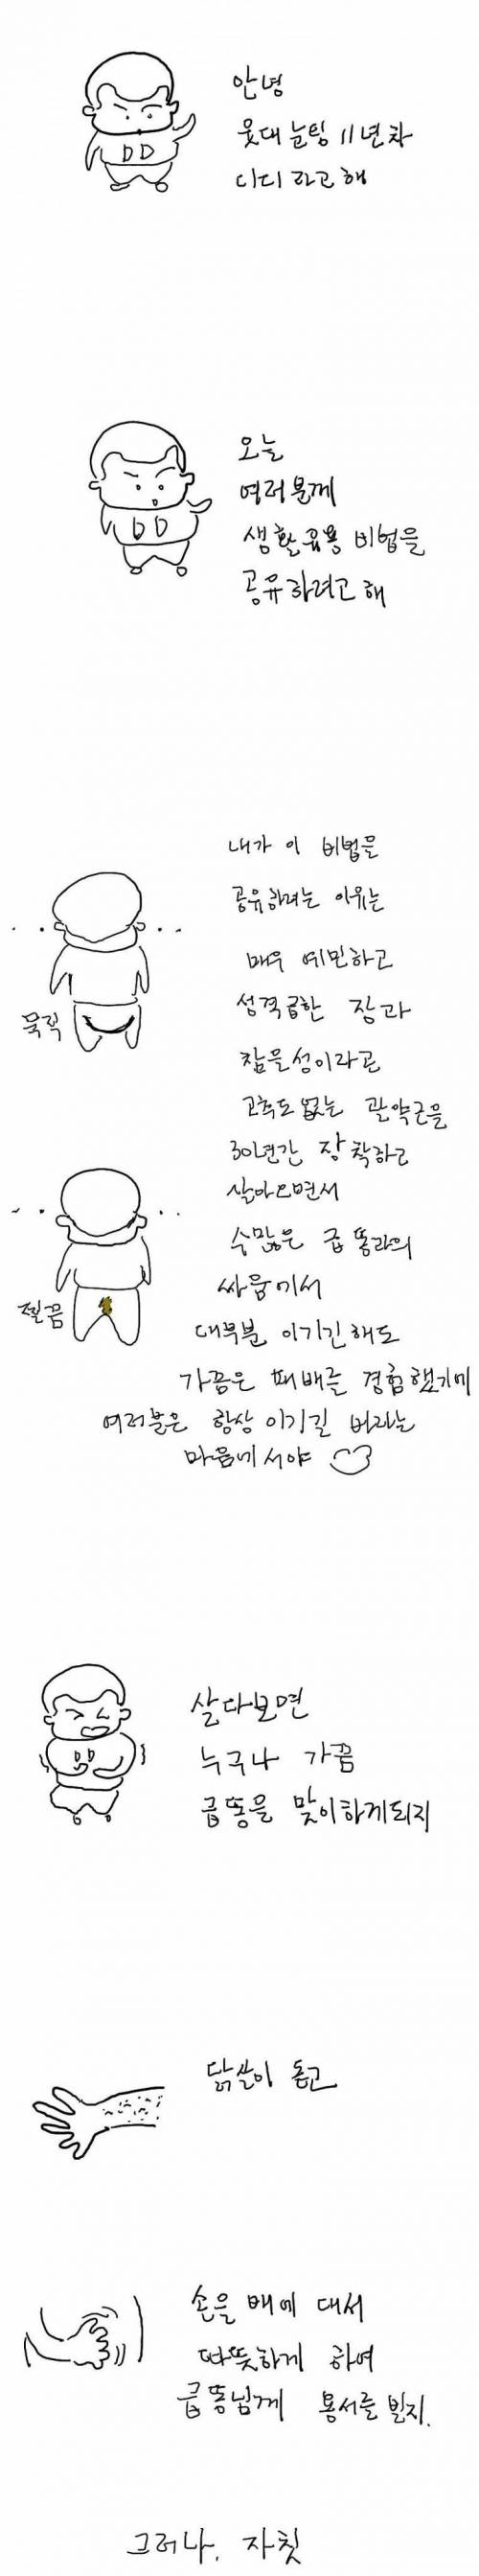 안녕
웃대 눈팅 11년차
디디라고 해
DD
오늘
여러분께
생활유용 비법을
공유하려고 해
DD
내가 이 비법을
공유하려는 이유는
매우 예민하고
성격급한 장과
참을성이라곤
고추도 없는 괄약근을
30년간 장착하고
살아오면서
수많은 급똥과의
싸움에서
대부분 이기긴 해도
가끔은 패배를 경험했기에
여러분은 항상 이기길 바라는
마음에서야
묵직
찔끔
살다보면
누구나 가끔
급똥을 맞이하게되지
DD
닭살이 돋고
손을 배에 대서
따뜻하게 하여
급똥님께 용서를 빌지.
그러나, 자칫